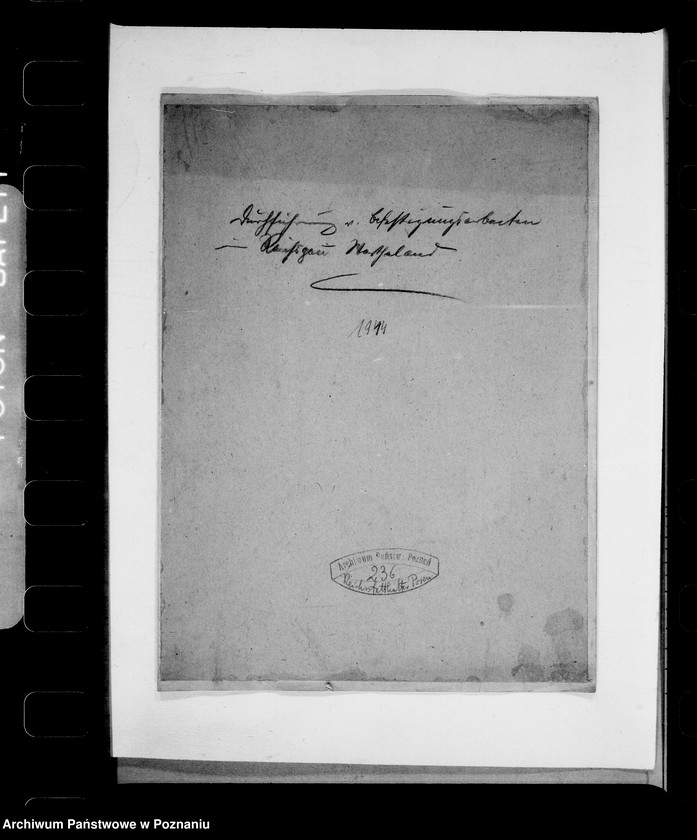 Durchführung v. Befestigungsarbeiten
im Reichsgau Wartheland
1944
Archiwum Państw. Poznań
236
Reichsstatthalter Posen
Archiwum Państwowe w Poznaniu